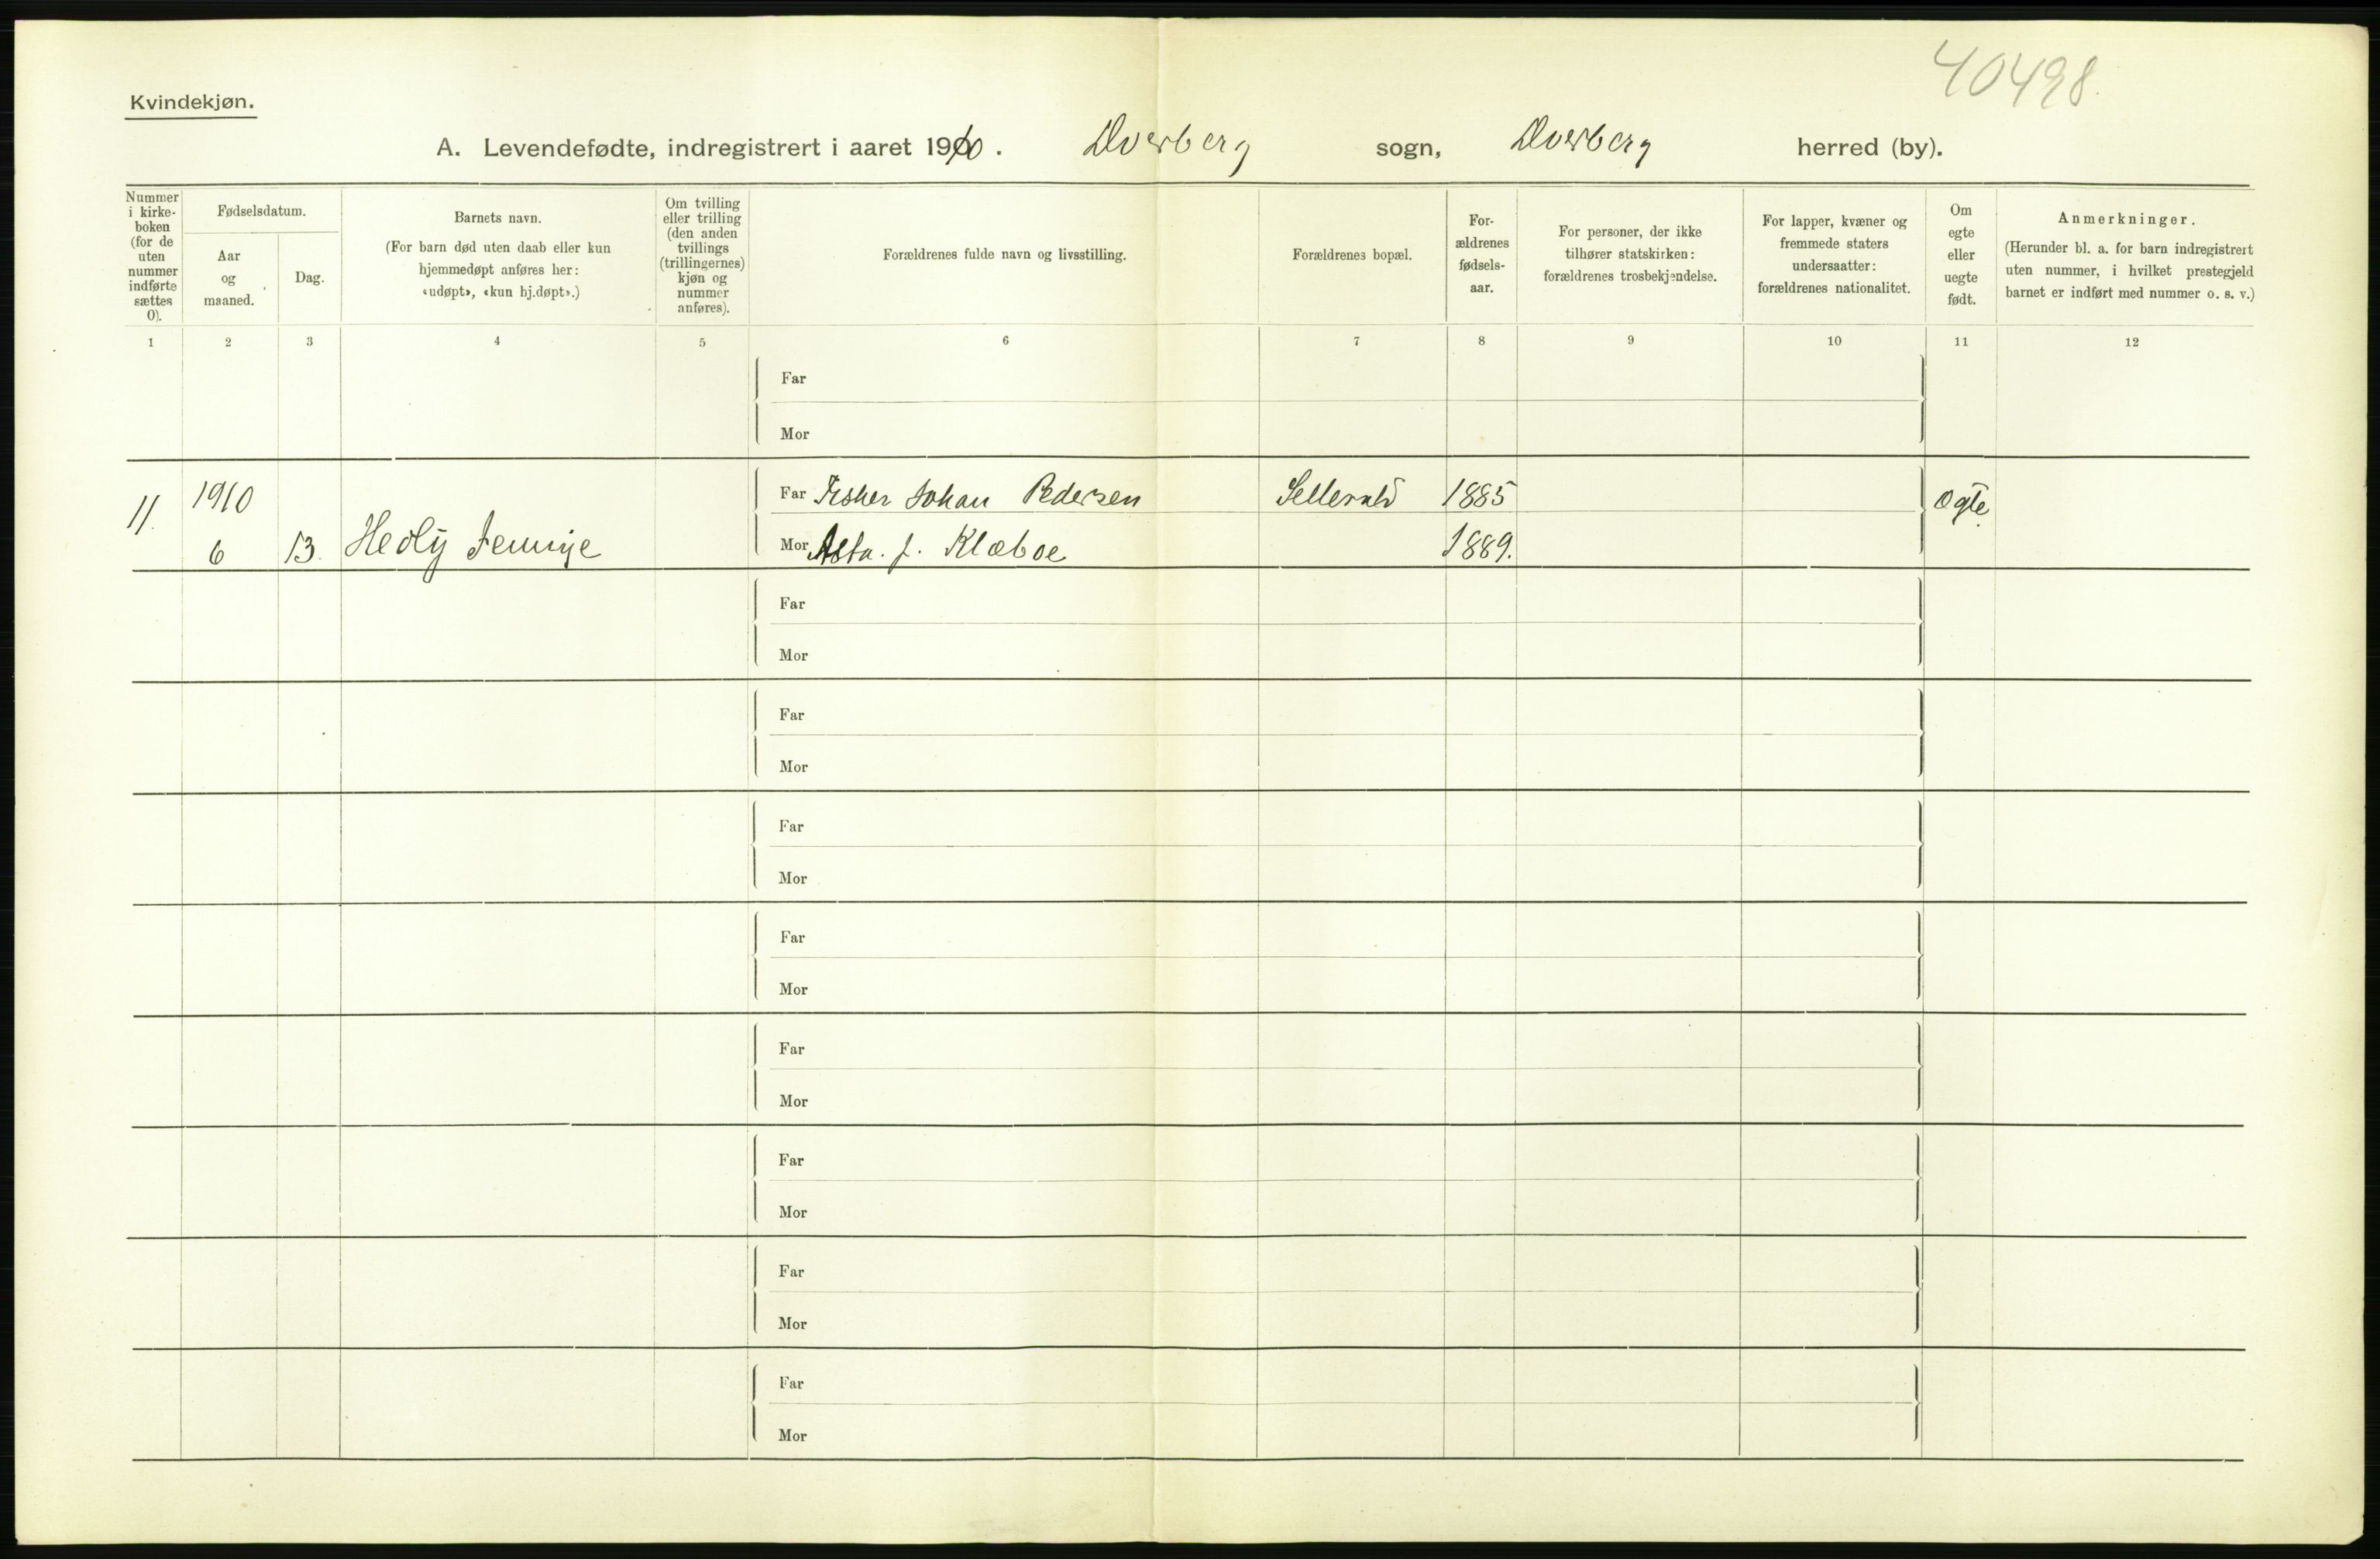 40498.
Kvindekjøn.
A. Levendefødte, indregistrert i aaret 1910. Dverberg sogn, Dverberg herred (by).
Nummer i kirke-boken (for de uten nummer indførte sættes 0).
Fødselsdatum.
Aar og maaned.
Dag.
Barnets navn.
(For barn død uten daab eller kun hjemmedøpt anføres her: «udøpt», «kun hj.døpt».)
Om tvilling eller trilling (den anden tvillings (trillingernes) kjøn og nummer anføres).
Forældrenes fulde navn og livsstilling.
Forældrenes bopæl.
For-ældrenes fødsels-aar.
For personer, der ikke tilhører statskirken: forældrenes trosbekjendelse.
For lapper, kvæner og fremmede staters undersaatter: forældrenes nationalitet.
Om egte eller uegte født.
Anmerkninger.
(Herunder bl. a. for barn indregistrert uten nummer, i hvilket prestegjeld barnet er indført med nummer o. s. v.)
1 2 3 4 5 6 7 8 9 10 11 12
Far
Mor
11. 1910 Far Fisker Johan Pedersen 1885 Ægte
6 13. Hedly Jennye Mor Asta f. Klæboe 1889.
Far
Mor
Far
Mor
Far
Mor
Far
Mor
Far
Mor
Far
Mor
Far
Mor
Far
Mor